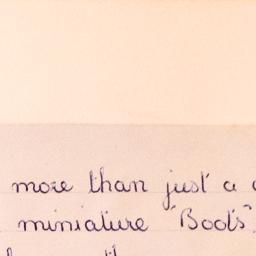 more than just a
miniature "Boots"